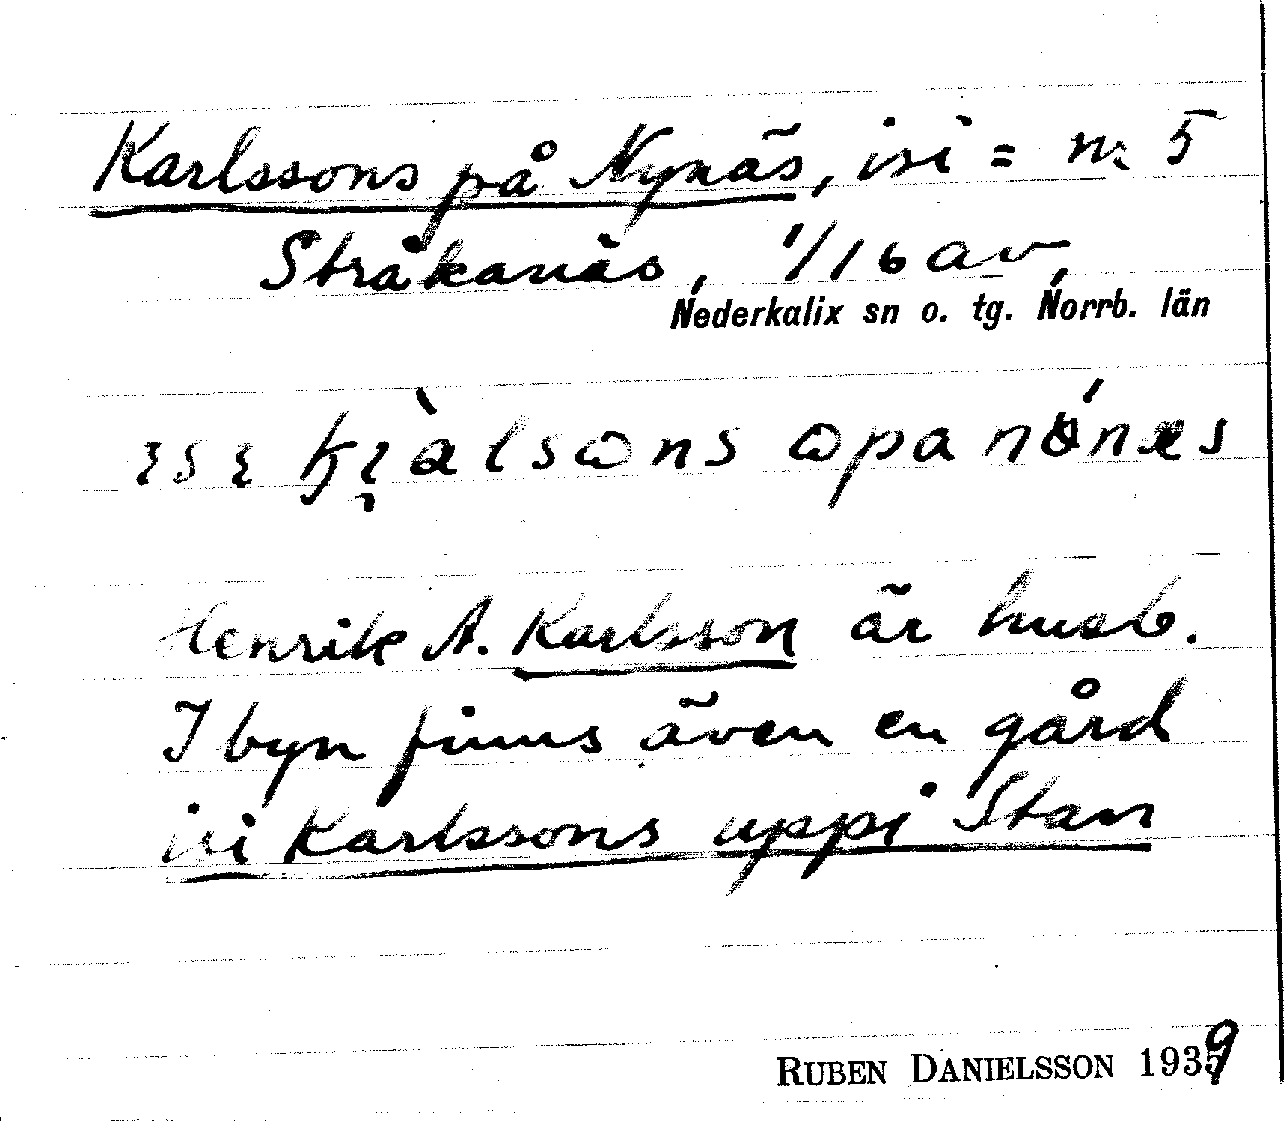 Karlssons på Nynäs, isi = nr 5
Stråkanäs, 1/16 av,
Nederkalix sn o. tg. Norrb. län
Henrik A. Karlsson är husb.
I byn finns även en gård
isi Karlssons uppi Stan
RUBEN DANIELSSON 1939